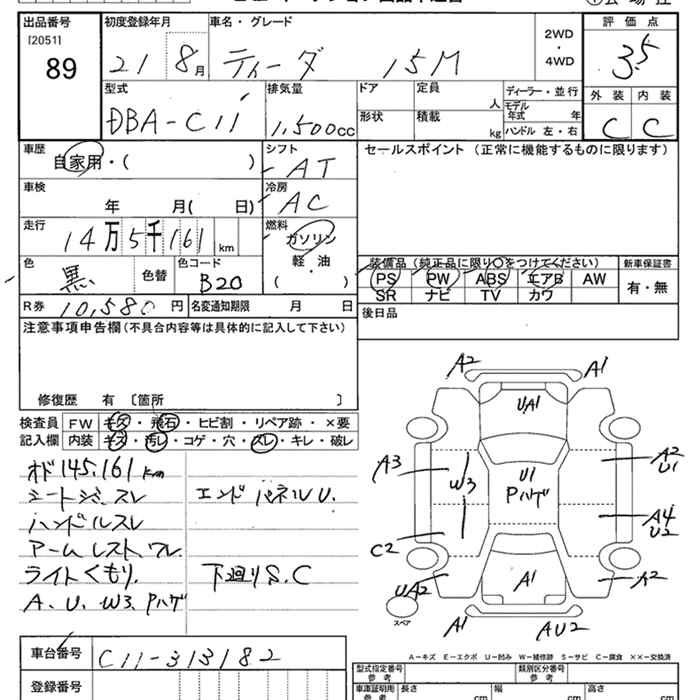 出品番号 初度登録年月 車名・グレード 2WD・4WD 評価点
[2051] 89 21 8月 ティーダ 15M 3.5
型式 排気量 ドア 定員 人 ディーラー・並行 外装 内装
DBA-C11 1,500cc 形状 積載 kg モデル年式 年 ハンドル 左・右 C C
車歴 自家用・( ) シフト AT セールスポイント (正常に機能するものに限ります)
車検 年 月( 日) 冷房 AC
走行 14万5千161km 燃料 ガソリン 軽・油 ( )
色 黒 色替 色コード B20
装備品(純正品に限り○をつけてください) 新車保証書
PS PW ABS エアB AW 有・無
SR ナビ TV カワ
R券 10,580円 名変通知期限 月 日 後日品
注意事項申告欄(不具合内容等は具体的に記入して下さい)
修復歴 有 〔箇所 〕
検査員 FW キズ・飛石・ヒビ割・リペア跡・×要
記入欄 内装 キズ・汚レ・コゲ・穴・スレ・キレ・破レ
オド145,161km
シートシミ、スレ エンドパネルU.
ハンドルスレ
アームレスト、ワレ
ライトくもり. 下廻りS.C
A. U. W3. Pハゲ
A2 A1
UA1
A3 W3 U1 Pハゲ A2 U1
A4 U2
C2
UA2 A1 A2
スペア A1 AU2
A－キズ E－エクボ U－凹み W－補修跡 S－サビ C－腐食 ××－交換済
車台番号 C11-313182
登録番号
型式指定番号 参考 類別区分番号 参考
車庫証明用 参考 長さ cm 幅 cm 高さ cm